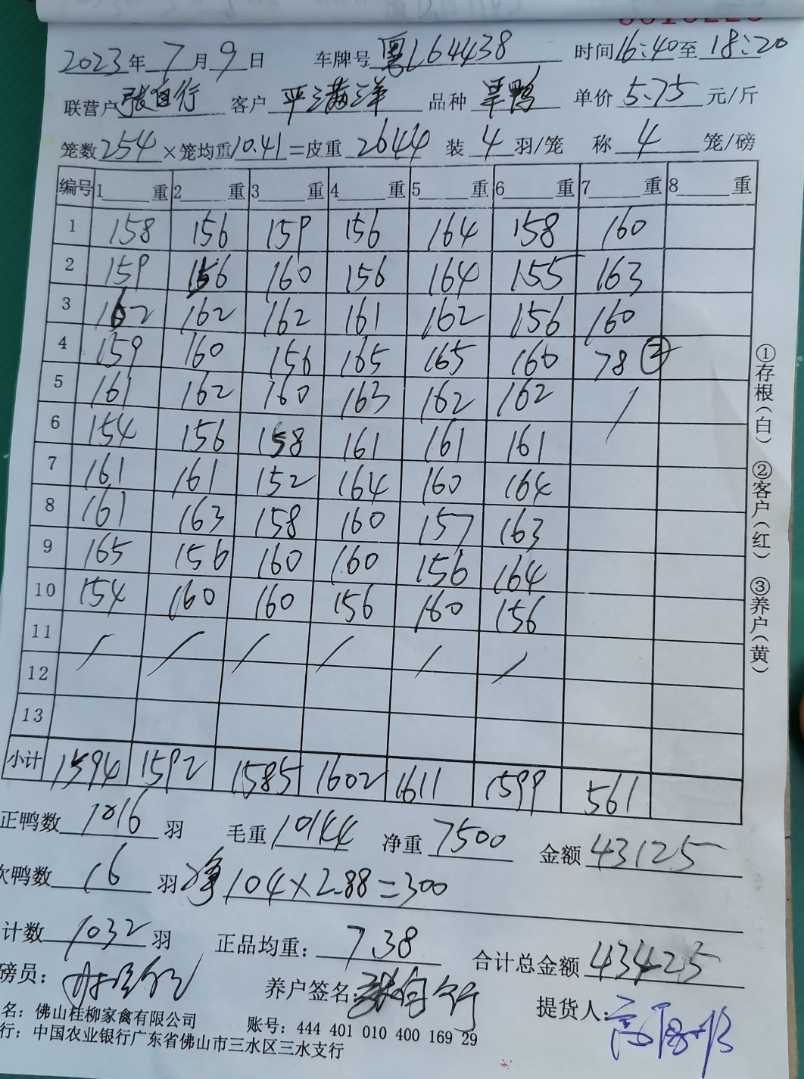 2023年7月9日 车牌号 粤L64438 时间16:40至18:20
联营户 张自行 客户 平三满三洋 品种 旱鸭 单价 5.75 元/斤
笼数254×笼均重10.41=皮重 2644 装 4 羽/笼 称 4 笼/磅
编号 1 重 2 重 3 重 4 重 5 重 6 重 7 重 8 重
1 158 156 159 156 164 158 160
2 159 156 160 156 164 155 163
3 162 162 162 161 162 156 160
4 159 160 156 165 165 160 78 ②
5 161 162 160 163 162 162 /
6 154 156 158 161 161 161
7 161 161 152 164 160 164
8 161 163 158 160 157 163
9 165 156 160 160 156 164
10 154 160 160 156 160 156
11 / / / / / /
12
13
小计 1594 1592 1585 1602 1611 1599 561
正鸭数 1016 羽 毛重 10144 净重 7500 金额 43125
次鸭数 16 羽 净 104×2.88=300
计数 1032 羽 正品均重: 7.38 合计总金额 43425
磅员: 养户签名: 张自行 提货人:
名: 佛山桂柳家禽有限公司 账号: 444 401 010 400 169 29
行: 中国农业银行广东省佛山市三水区三水支行
①存根(白) ②客户(红) ③养户(黄)